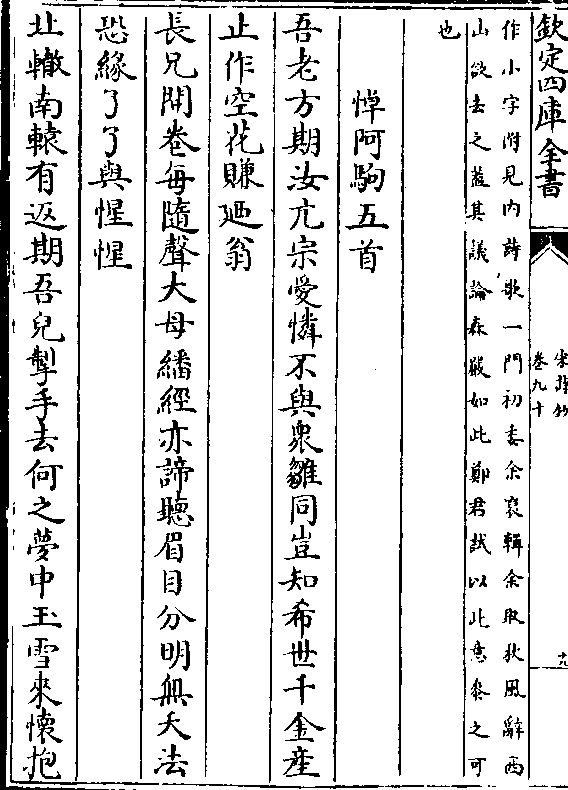 欽定四庫全書
宋詩鈔
卷九十
十九
作小字附見内詩歌一門初委余裒輯余取秋風辭西
山欲去之葢其議論森嚴如此鄭君試以此意叅之可
也
悼阿駒五首
吾老方期汝亢宗愛憐不與衆雛同豈知希世千金產
止作空花賺廼翁
長兄開卷每隨聲大母繙經亦諦聽眉目分明無夭法
恐緣了了與惺惺
北轍南轅有返期吾兒掣手去何之夢中玉雪來懷抱